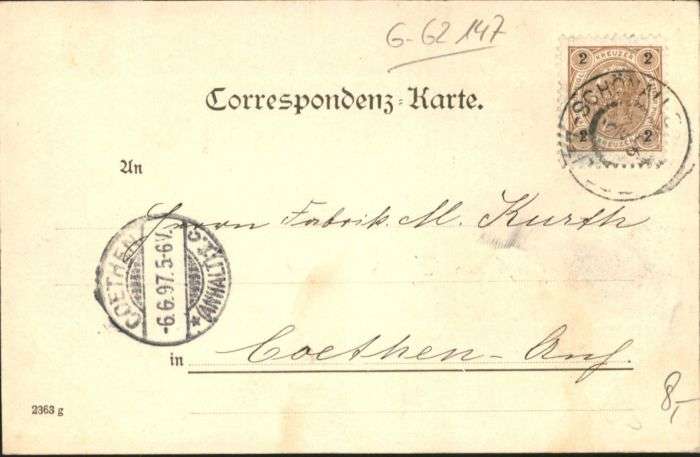 G-62 147
KREUZER
2 2
2 2
KREUZER
Correspondenz-Karte.
An
Herrn Fabrik. M. Kurth
COETHEN
-6.6.97.5-6V.
(ANHALT)
in Coethen-Anh.
2363 g
8,-